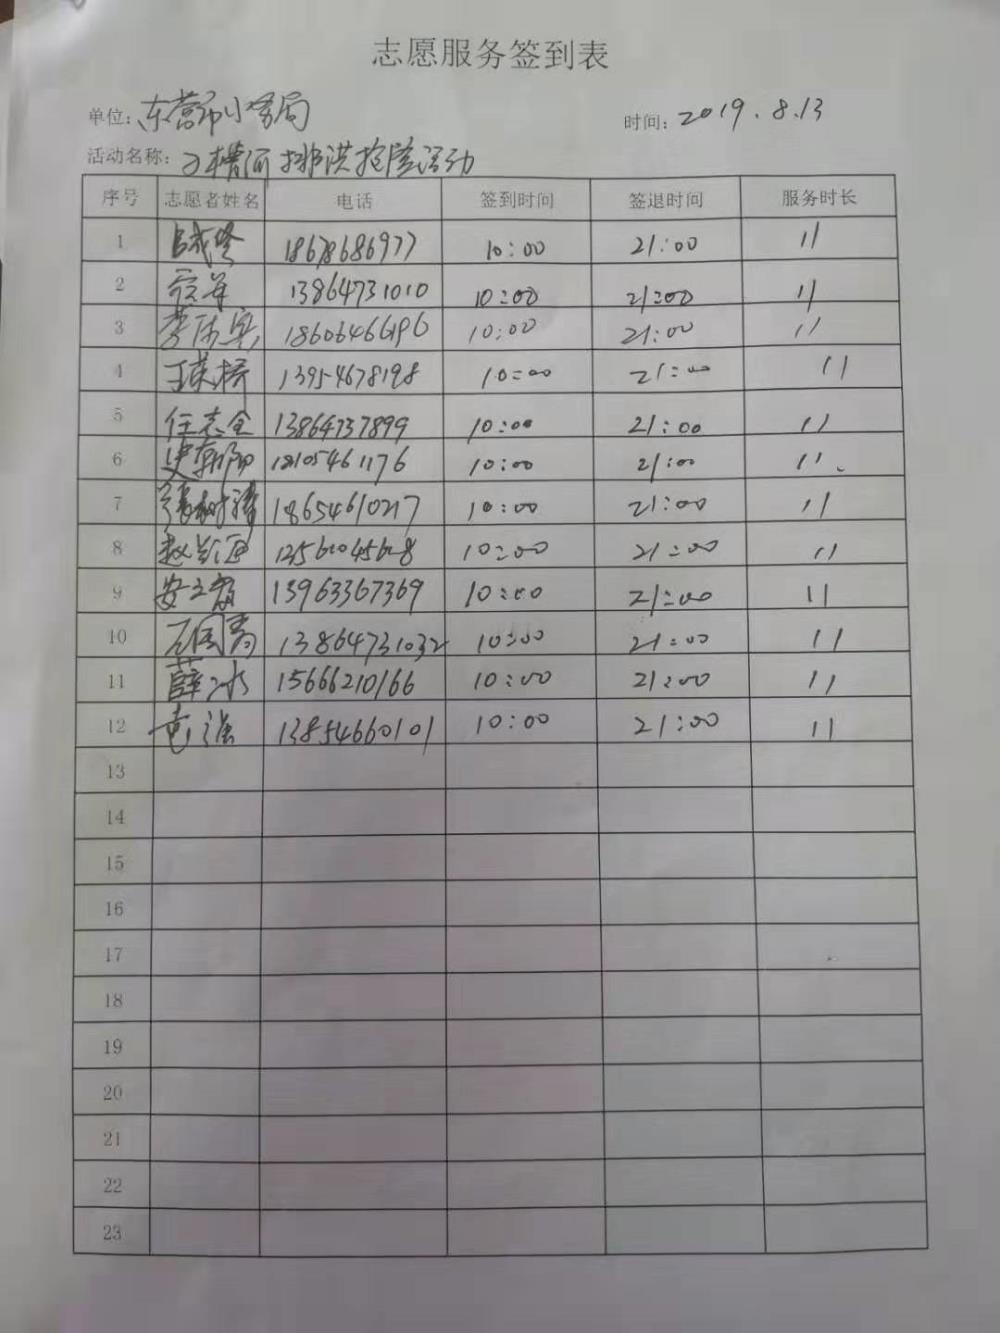 志愿服务签到表
单位: 东营市水务局 时间: 2019.8.13
活动名称: 排洪抢险活动
序号 志愿者姓名 电话 签到时间 签退时间 服务时长
1 18678686977 10:00 21:00 11
2 13864731010 10:00 21:00 11
3 18606466196 10:00 21:00 11
4 13954678198 10:00 21:00 11
5 任志全 13864737899 10:00 21:00 11
6 史朝阳 10:00 21:00 11
7 张树清 18654610217 10:00 21:00 11
8 10:00 21:00 11
9 13963367369 10:00 21:00 11
10 13864731032 10:00 21:00 11
11 薛冰 15666210166 10:00 21:00 11
12 13854660101 10:00 21:00 11
13
14
15
16
17
18
19
20
21
22
23